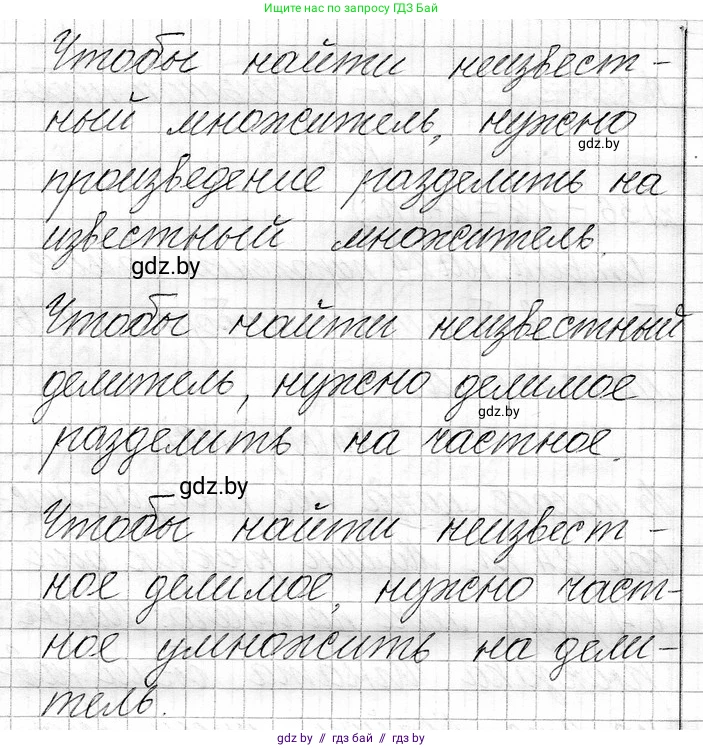 Ищите нас по запросу ГДЗ Бай
Чтобы найти неизвест-
ный множитель, нужно
gdz.by
произведение разделить на
известный множитель.
gdz.by
Чтобы найти неизвестный
делитель, нужно делимое
gdz.by
разделить на частное.
gdz.by
Чтобы найти неизвест-
ное делимое, нужно част-
ное умножить на дели-
тель.
gdz.by // гдз бай // гдз by